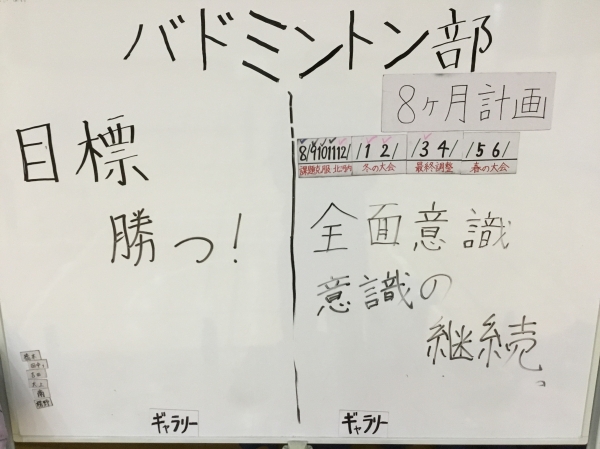 バドミントン部
8ヶ月計画
8/9/10/11/12/ /1 2/ /3 4/ /5 6/
課題克服 北河内 冬の大会 最終調整 春の大会
目標
勝つ!
全面意識
意識の
継続。
南
ギャラリー ギャラリー